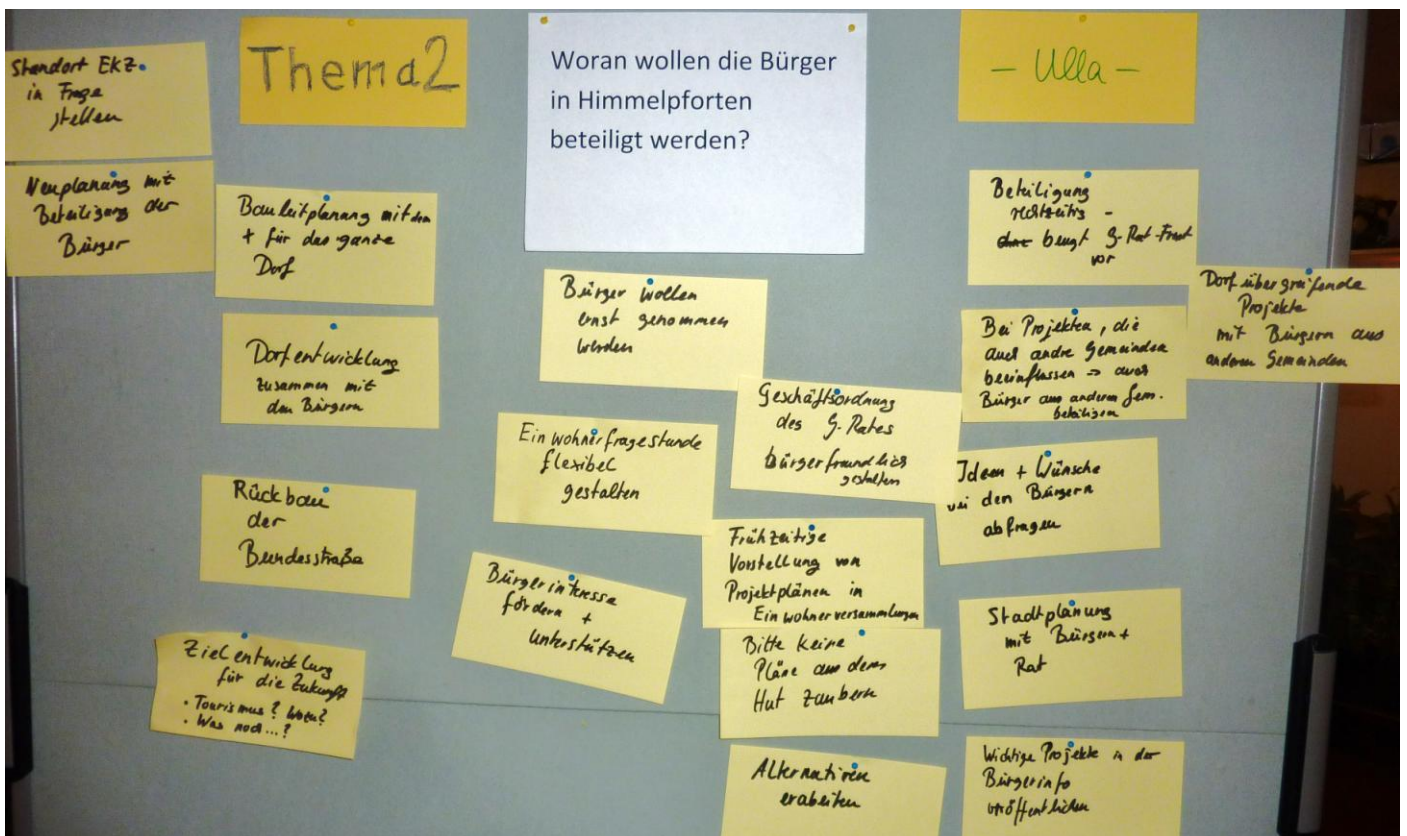 Standort EKZ
in Frage
stellen
Neuplanung mit
Beteiligung der
Bürger
Thema2
Bauleitplanung mit dem
+ für das ganze
Dorf
Dorfentwicklung
zusammen mit
den Bürgern
Rückbau
der
Bundesstraße
Zielentwicklung
für die Zukunft
• Tourismus? Wozu?
• Was noch...?
Woran wollen die Bürger
in Himmelpforten
beteiligt werden?
Bürger wollen
ernst genommen
werden
Einwohnerfragestunde
flexibel
gestalten
Bürgerinteresse
fördern +
unterstützen
Geschäftsordnung
des G-Rates
bürgerfreundlich
gestalten
Frühzeitige
Vorstellung von
Projektplänen in
Einwohnerversammlungen
Bitte keine
Pläne aus dem
Hut zaubern
Alternativen
erabeiten
- Ulla -
Beteiligung
rechtzeitig -
beugt G-Rat-Frust
vor
Bei Projekten, die
auch andre Gemeinden
beeinflussen => auch
Bürger aus anderen Gem.
beteiligen
Dorfübergreifende
Projekte
mit Bürgern aus
anderen Gemeinden
Ideen + Wünsche
bei den Bürgern
abfragen
Stadtplanung
mit Bürgern +
Rat
Wichtige Projekte in der
Bürgerinfo
veröffentlichen